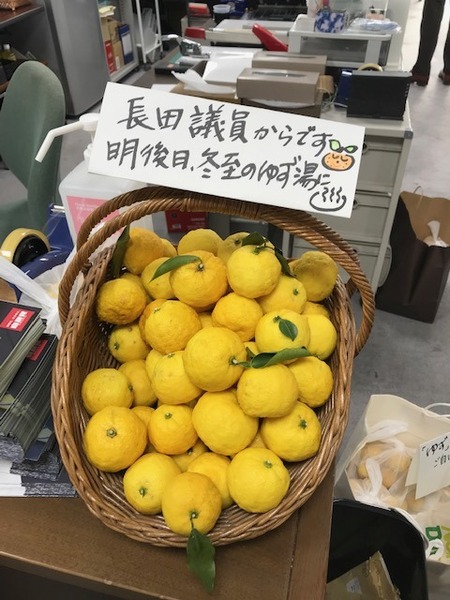 長田議員からです
明後日、冬至のゆず湯に
「ゆず」
ご自